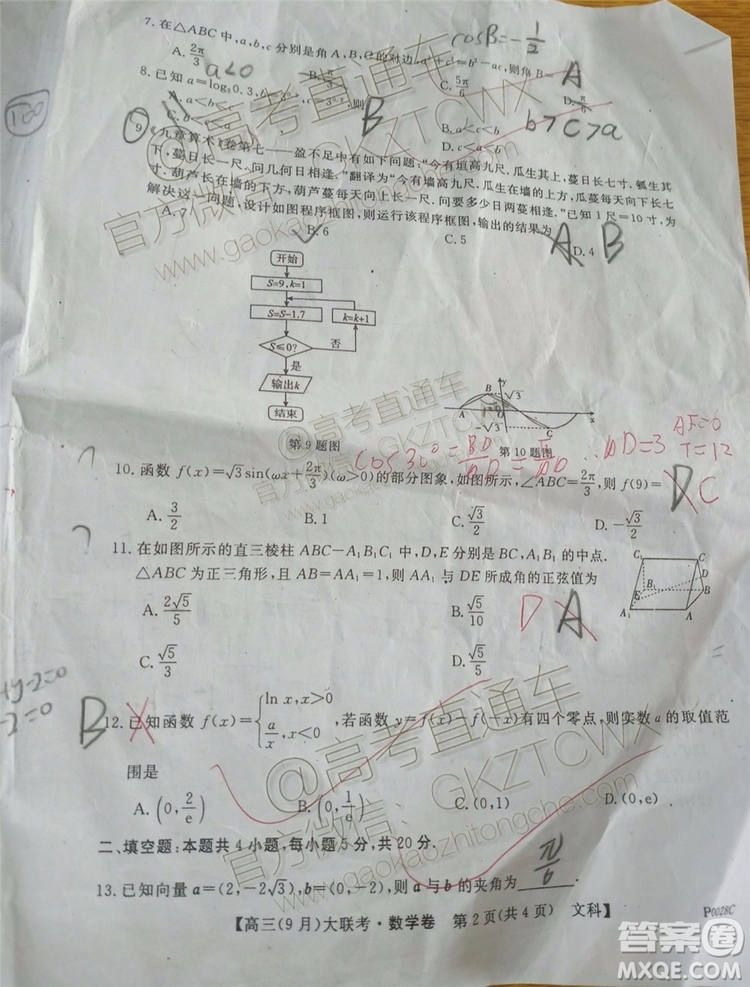 7. 在△ABC中,a,b,c分别是角A,B,C的对边,a²+c²=b²-ac,则角B=
cosB=-1/2
A
A. 2π/3
C. 5π/6
D. π/6
8. 已知a=log₃0.3,
则
a<0
B
A. a<b<c
B. a<c<b
D. c<a<b
b>c>a
100
9. 《九章算术》卷第七——盈不足中有如下问题:“今有垣高九尺.瓜生其上,蔓日长七寸.瓠生其
下,蔓日长一尺.问几何日相逢.”翻译为“今有墙高九尺.瓜生在墙的上方,瓜蔓每天向下长七
寸.葫芦长在墙的下方,葫芦蔓每天向上长一尺.问要多少日两蔓相逢.”已知1尺=10寸,为
解决这一问题,设计如图程序框图,则运行该程序框图,输出的结果为
A. 7
B. 6
C. 5
D. 4
A B
开始
S=9, k=1
S=S-1.7
k=k+1
S≤0?
否
是
输出k
结束
第9题图
y
√3
B
A
O
x
-√3
C
第10题图
AF=6
T=12
cos30°=
∴AD=3
10. 函数 f(x)=√3sin(ωx+2π/3)(ω>0)的部分图象,如图所示,∠ABC=2π/3,则f(9)=
D C
A. 3/2
B. 1
C. √3/2
D. -√3/2
11. 在如图所示的直三棱柱ABC-A₁B₁C₁中,D,E分别是BC,A₁B₁的中点.
△ABC为正三角形,且AB=AA₁=1,则AA₁与DE所成角的正弦值为
A. 2√5/5
B. √5/10
C. √5/3
D. √5/5
D A
C₁
C
D
B₁
B
E
A₁
A
+y-2=0
-2=0
B
12. 已知函数 f(x)={ln x,x>0
a/x,x<0
,若函数y=f(x)-f(-x)有四个零点,则实数a的取值范
围是
A. (0,2/e)
B. (0,1/e)
C. (0,1)
D. (0,e)
二、填空题:本题共4小题,每小题5分,共20分.
13. 已知向量a=(2,-2√3),b=(0,-2),则a与b的夹角为 π/6 .
【高三(9月)大联考·数学卷 第2页(共4页) 文科】
P0028C
@高考直通车
GKZTCWX
官方微信:
www.gaokaozhitongche.com
@高考直通车
GKZTCWX
官方微信:GKZTCWX
www.gaokaozhitongche.com
答案圈
MXQE.COM